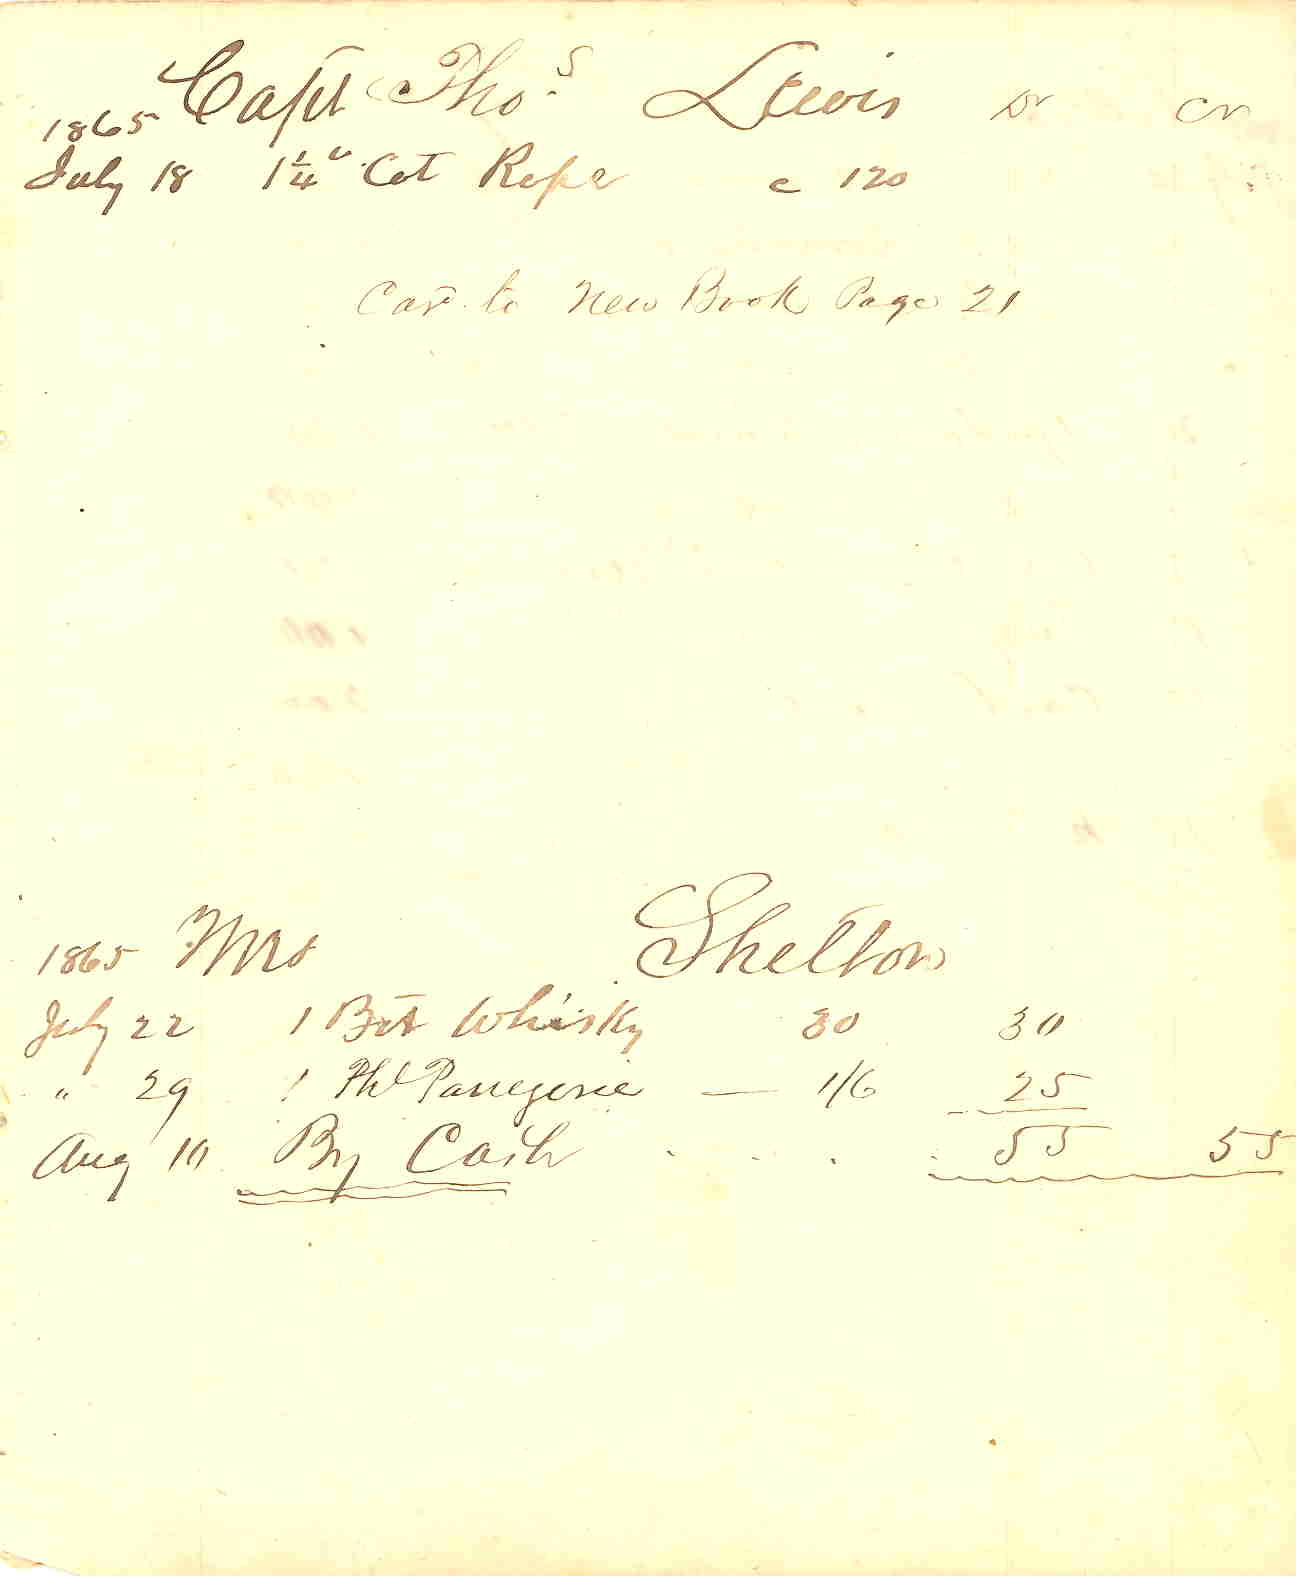 1865 Capt Thos Lewis Dr Cr
July 18 1 1/4 " Cot Rope c 120
Card to New Book Page 21
1865 Mrs Shelton
July 22 1 Bot Whisky 30 30
" 29 1 Phl Parregorie — 1/6 25
Aug 10 By Cash . . . . 55 55